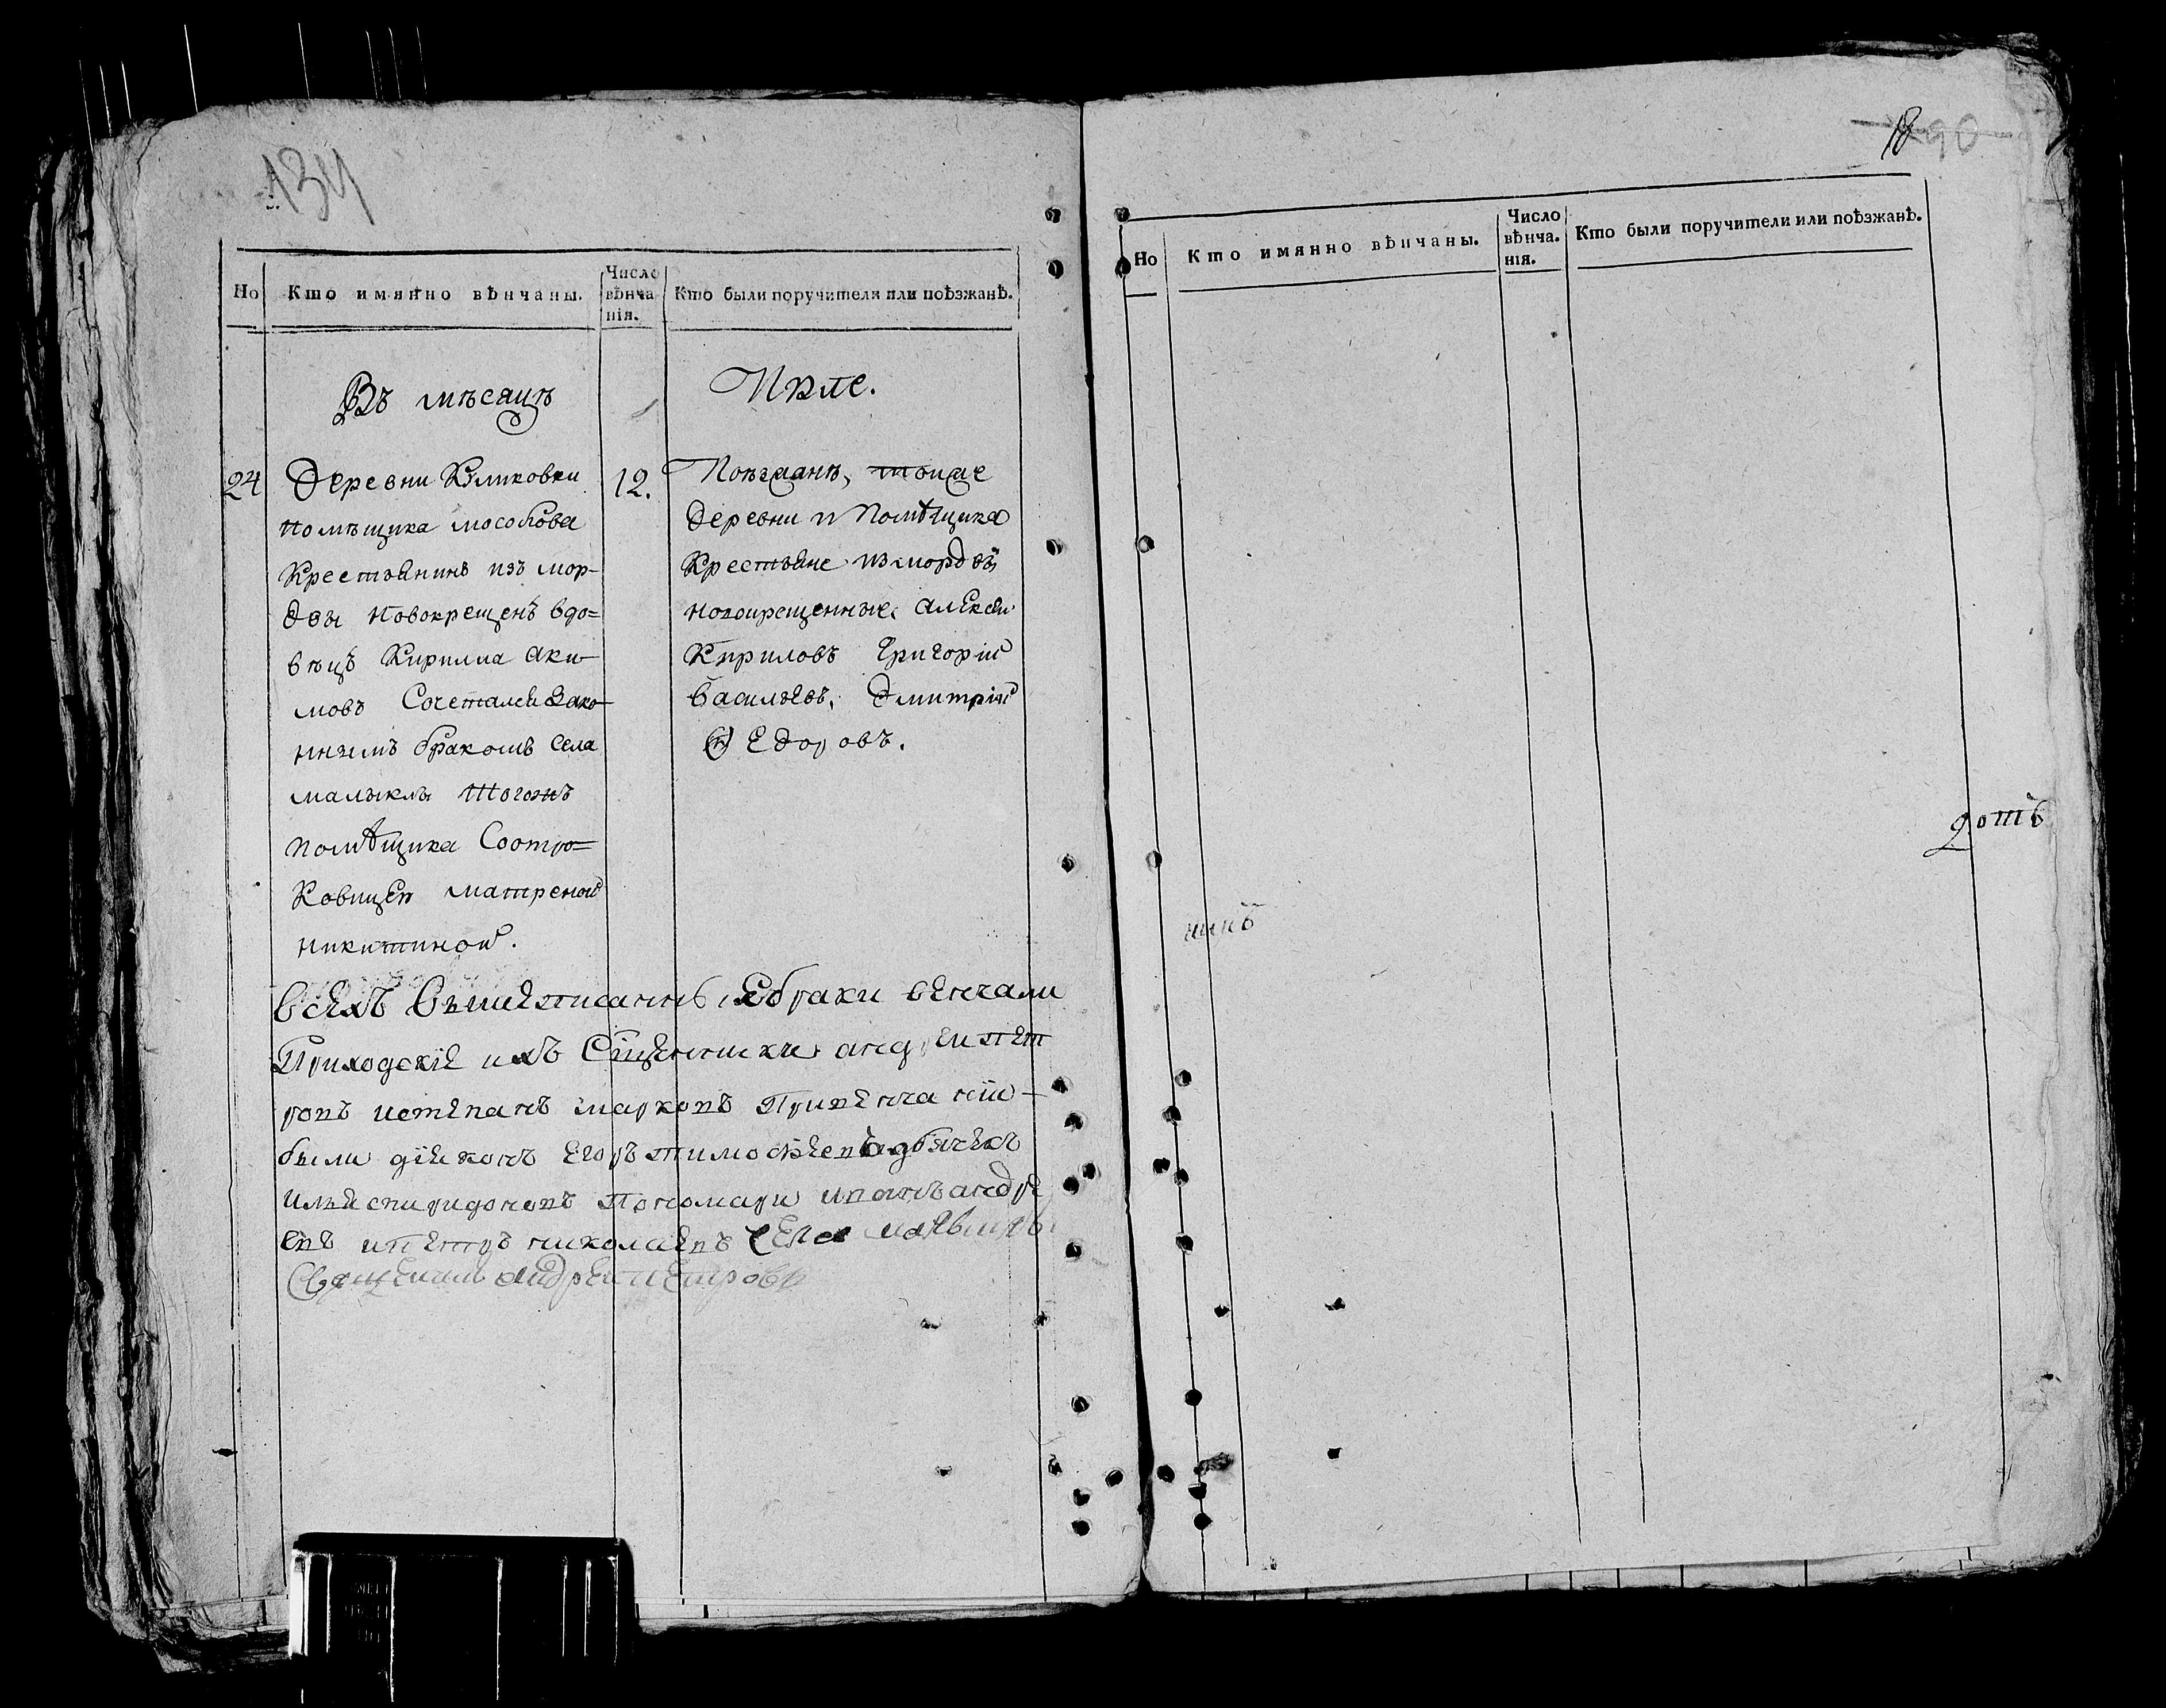 134
Но
Кто имянно вѣнчаны.
Число
вѣнча
нія.
Кто были поручители или поѣзжанѣ.
Въ мѣсяцѣ
Июле.
24
Деревни Куликовки
помѣщика
Крестьянинъ изъ мор-
двы новокрещенъ вдо=
вецъ Кирилла Аки-
мовъ Сочетался зако-
ннымъ бракомъ села
малыклы тогожъ
помѣщика
матреной
никитиной.
12.
Поѣзжанѣ, тоиже
деревни и помѣщика
Крестьяне изъ мордвы
новокрещенные Алексѣй
Кириловъ Григорій
Васильевъ, Дмитрій
Ѳедоровъ.
всехъ вышеписанныхъ браки венчали
Приходскіе ихъ Сщенники андреи пет
ровъ истепанъ марковъ Привенчаніи
были діяконъ Егоръ тимоѳеевъ дьячекъ
илья спиридоновъ Пономари иванъ андре
евъ ипетръ николаевъ села
Священникъ андреи петровъ
18
90
Но
Кто имянно вѣнчаны.
Число
вѣнча.
нія.
Кто были поручители или поѣзжанѣ.